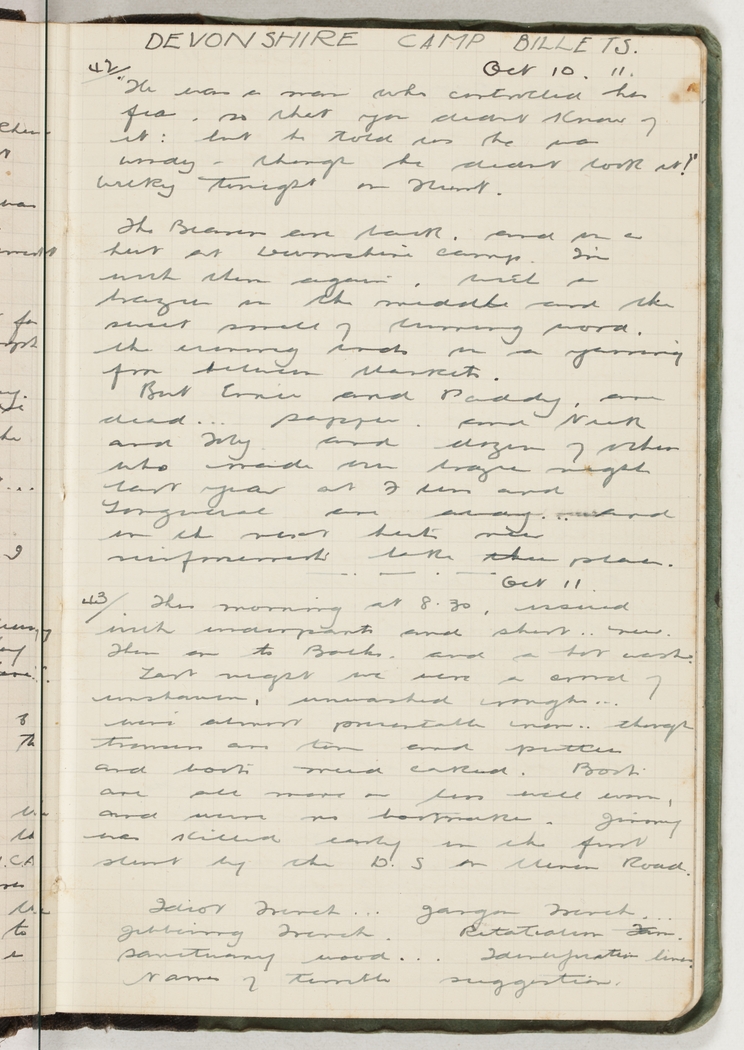 DEVONSHIRE CAMP BILLETS.
Oct 10. 11.
42/ "He was a man who controlled his
fear, so that you didn't know of
it: but he told us he was
windy - though he didn't look it!"
tonight on

The Bearers are back, and in a
hut at Devonshire camp. I'm
with them again, with a
brazier in the middle and the
sweet smell of burning wood.
the evening ends in a yarning
from between blankets.
But Ernie and Paddy, are
dead... and Nick
and and dozens of others
who made our brazier nights
last year at and
Longueval are away... and
in the next huts new
reinforcements take their place.
Oct 11.
43/ This morning at 8.30, issued
with underpants and shirt.. new.
Then on to Baths. and a hot wash.
Last night we were a crowd of
unshaven, unwashed roughs...
were almost presentable now.. though
trousers are torn and puttees
and boots mud caked. Boots
are all more or less well worn,
and we've no bootmaker. Jimmy
was killed early in the first
stunt by the D.S on Menin Road.

Idiot Trench... Jargon Trench...
Gibbering Trench. Retaliation Farm.
Sanctuary wood... Identification line.
Names of terrible suggestion.